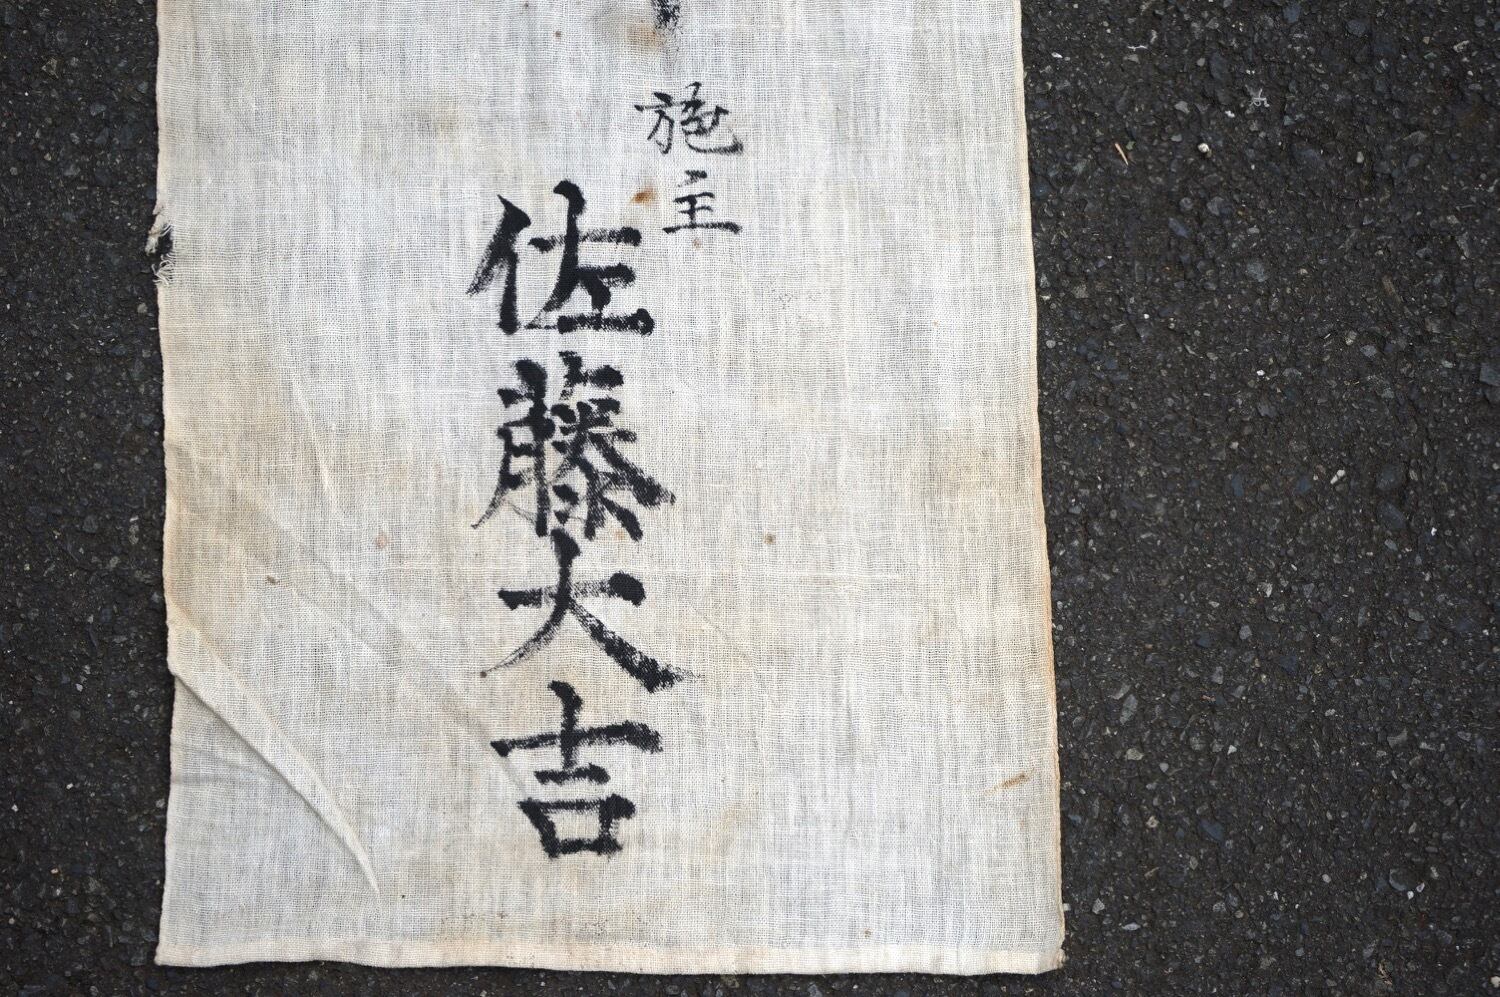 施主
佐藤大吉